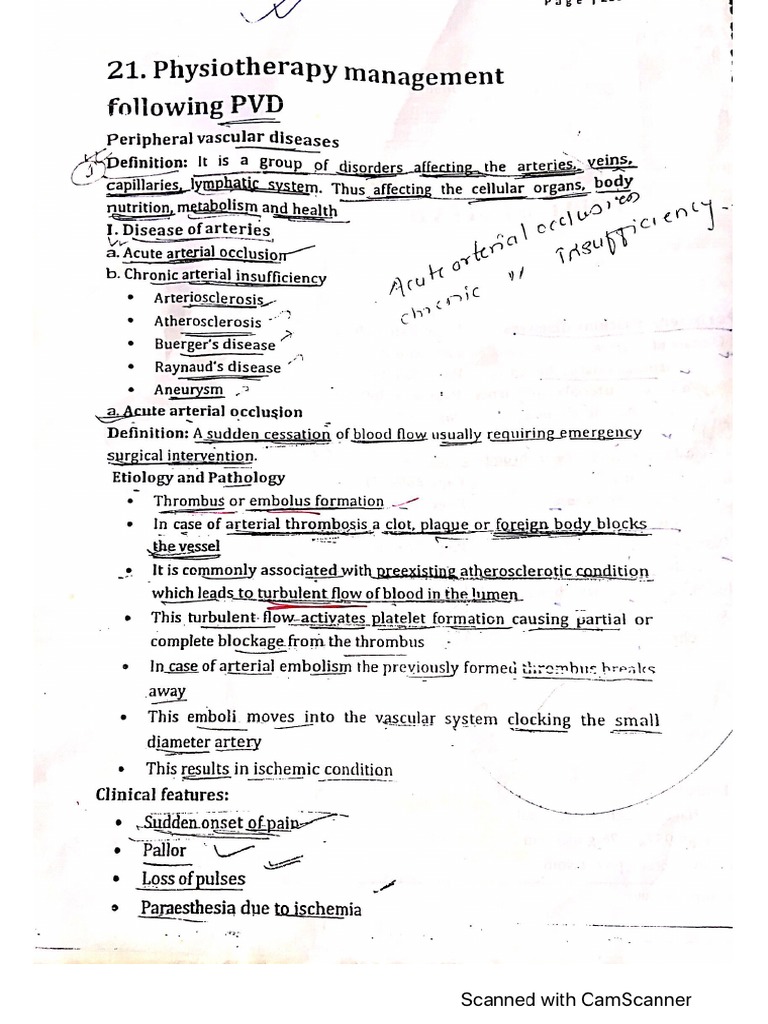 21. Physiotherapy management
following PVD
Peripheral vascular diseases
Definition: It is a group of disorders affecting the arteries, veins,
capillaries, lymphatic system. Thus affecting the cellular organs, body
nutrition, metabolism and health
I. Disease of arteries
a. Acute arterial occlusion
b. Chronic arterial insufficiency
Acute arterial occlusion
chronic " insufficiency
• Arteriosclerosis
• Atherosclerosis
• Buerger's disease
• Raynaud's disease
• Aneurysm
a. Acute arterial occlusion
Definition: A sudden cessation of blood flow usually requiring emergency
surgical intervention.
Etiology and Pathology
• Thrombus or embolus formation
• In case of arterial thrombosis a clot, plaque or foreign body blocks
the vessel
• It is commonly associated with preexisting atherosclerotic condition
which leads to turbulent flow of blood in the lumen
• This turbulent flow activates platelet formation causing partial or
complete blockage from the thrombus
• In case of arterial embolism the previously formed thrombus breaks
away
• This emboli moves into the vascular system clocking the small
diameter artery
• This results in ischemic condition
Clinical features:
• Sudden onset of pain
• Pallor
• Loss of pulses
• Paraesthesia due to ischemia
Scanned with CamScanner